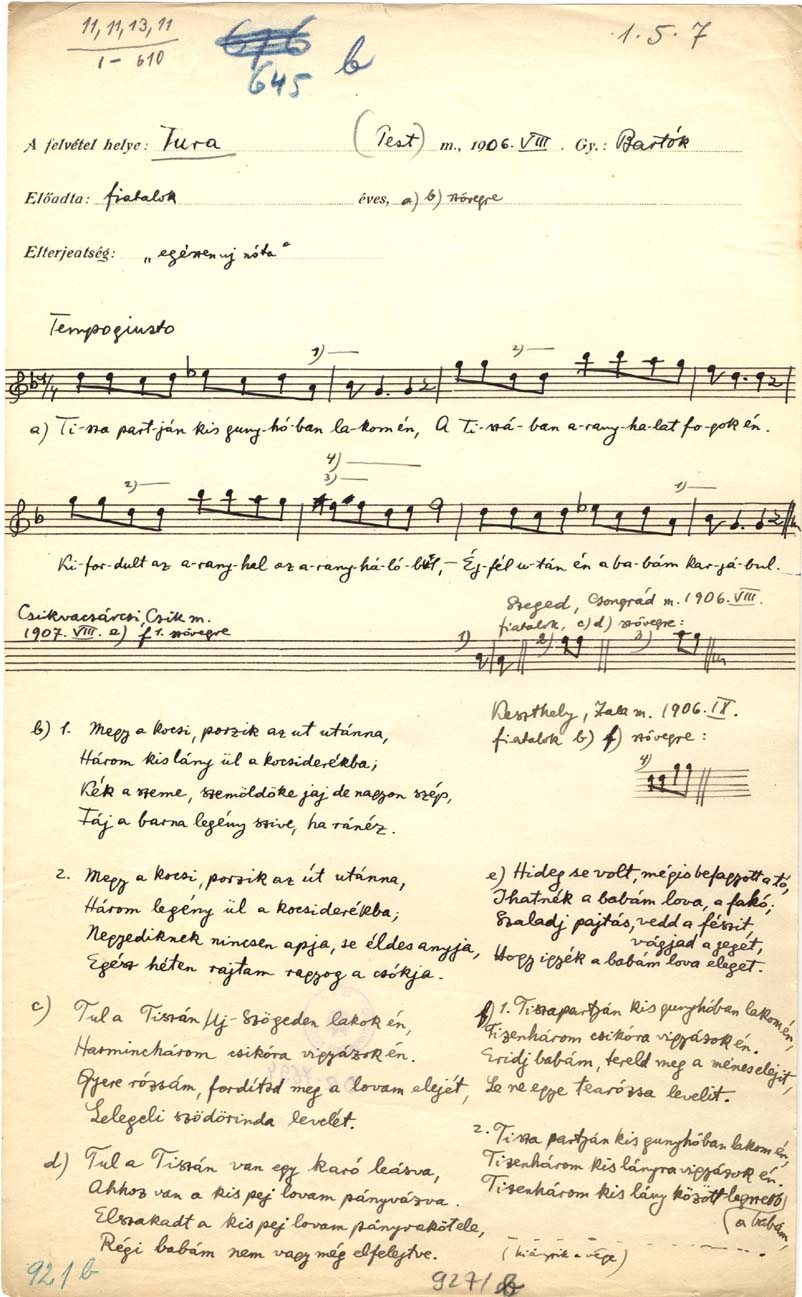 11, 11, 13, 11
1 - 610
676
645 b
1. 5. 7
A felvétel helye: Tura (Pest) m., 1906. VIII. Gy.: Bartók
Előadta: fiatalok éves, a) b) szövegre
Elterjeatség: „egészen uj nóta"
Tempo giusto
1) 2)
a) Ti-sza part-ján kis guny-hó-ban la-kom én, A Ti-szá-ban a-rany-ha-lat fo-gok én.
4)
2) 3) 1)
Ki-for-dult az a-rany-hal az a-rany-há-ló-búl, – Éj-fél u-tán én a ba-bám kar-já-bul.
Csikvacsárcsi, Csik m.
1907. VIII. e) f 1. szövegre
Szeged, Csongrád m. 1906. VIII.
fiatalok, c) d) szövegre:
1) 2) 3)
Keszthely, Zala m. 1906. IX.
fiatalok b) f) szövegre:
4)
b) 1. Megy a kocsi, porzik az ut utánna,
Három kis lány ül a kocsiderékba;
Kék a szeme, szemöldöke jaj de nagyon szép,
Fáj a barna legény szive, ha ránéz.
2. Megy a kocsi, porzik az út utánna,
Három legény ül a kocsiderékba;
Negyediknek nincsen apja, se éldes anyja,
Egész héten rajtam ragyog a csókja.
c) Tul a Tiszán Uj-Szögeden lakok én,
Harminchárom csikóra vigyázok én.
Gyere rózsám, fordítsd meg a lovam elejét,
Lelegeli szödörinda levelét.
d) Tul a Tiszán van egy karó leásva,
Ahhoz van a kis pej lovam pányvázva.
Elszakadt a kis pej lovam pányvakötele,
Régi babám nem vagy még elfelejtve.
e) Hideg se volt, mégis befagyott a tó,
Ihatnék a babám lova, a fakó;
Szaladj pajtás, vedd a fészit,
vágjad a jegét,
Hogy igyék a babám lova eleget.
f) 1. Tisza partján kis gunyhóban lakom én,
Tizenhárom csikóra vigyázok én.
Eridj babám, tereld meg a ménes elejit,
Le ne egye tearózsa levelit.
2. Tisza partján kis gunyhóban lakom én,
Tizenhárom kis lányra vigyázok én.
Tizenhárom kis lány között
(a babám,
(hiányzik a vége)
921 b
927/b